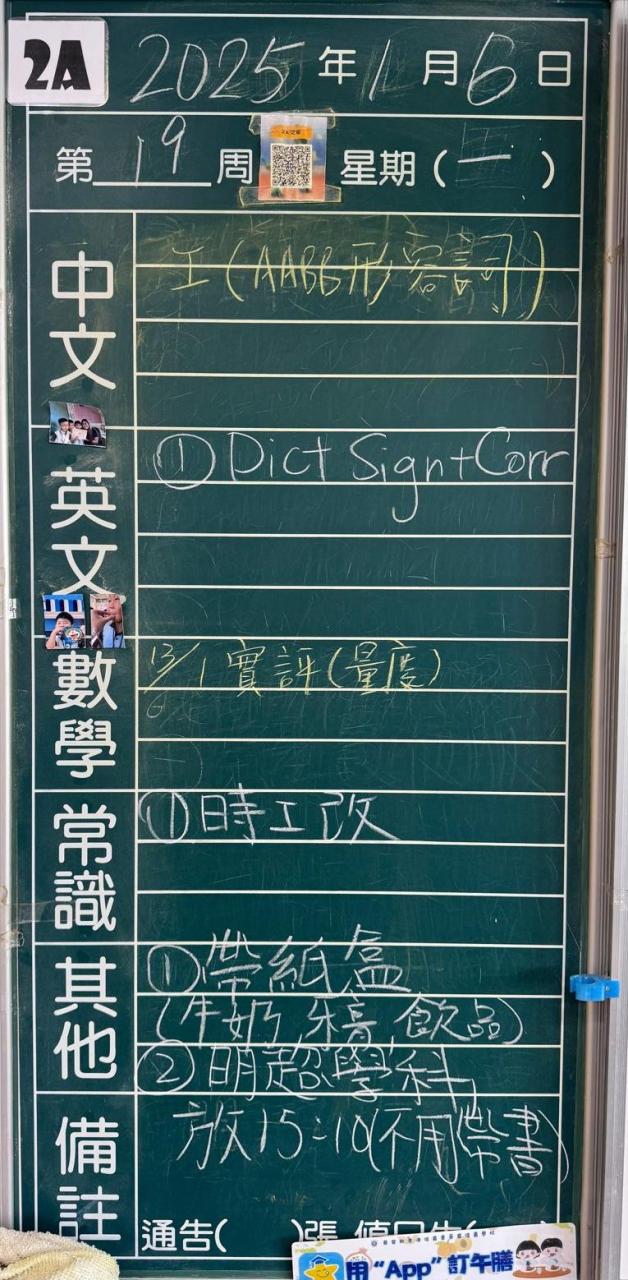 2A
2025年1月6日
第19周 星期(一)
中文
工(AABB形容詞)
英文
① Dict Sign+Corr
數學
13/1 實評(量度)
常識
①時工改
其他
①帶紙盒
(牛奶, 飲品)
②明超學科,
備註
放15:10(不用帶書)
通告( )張
用“App”訂午膳